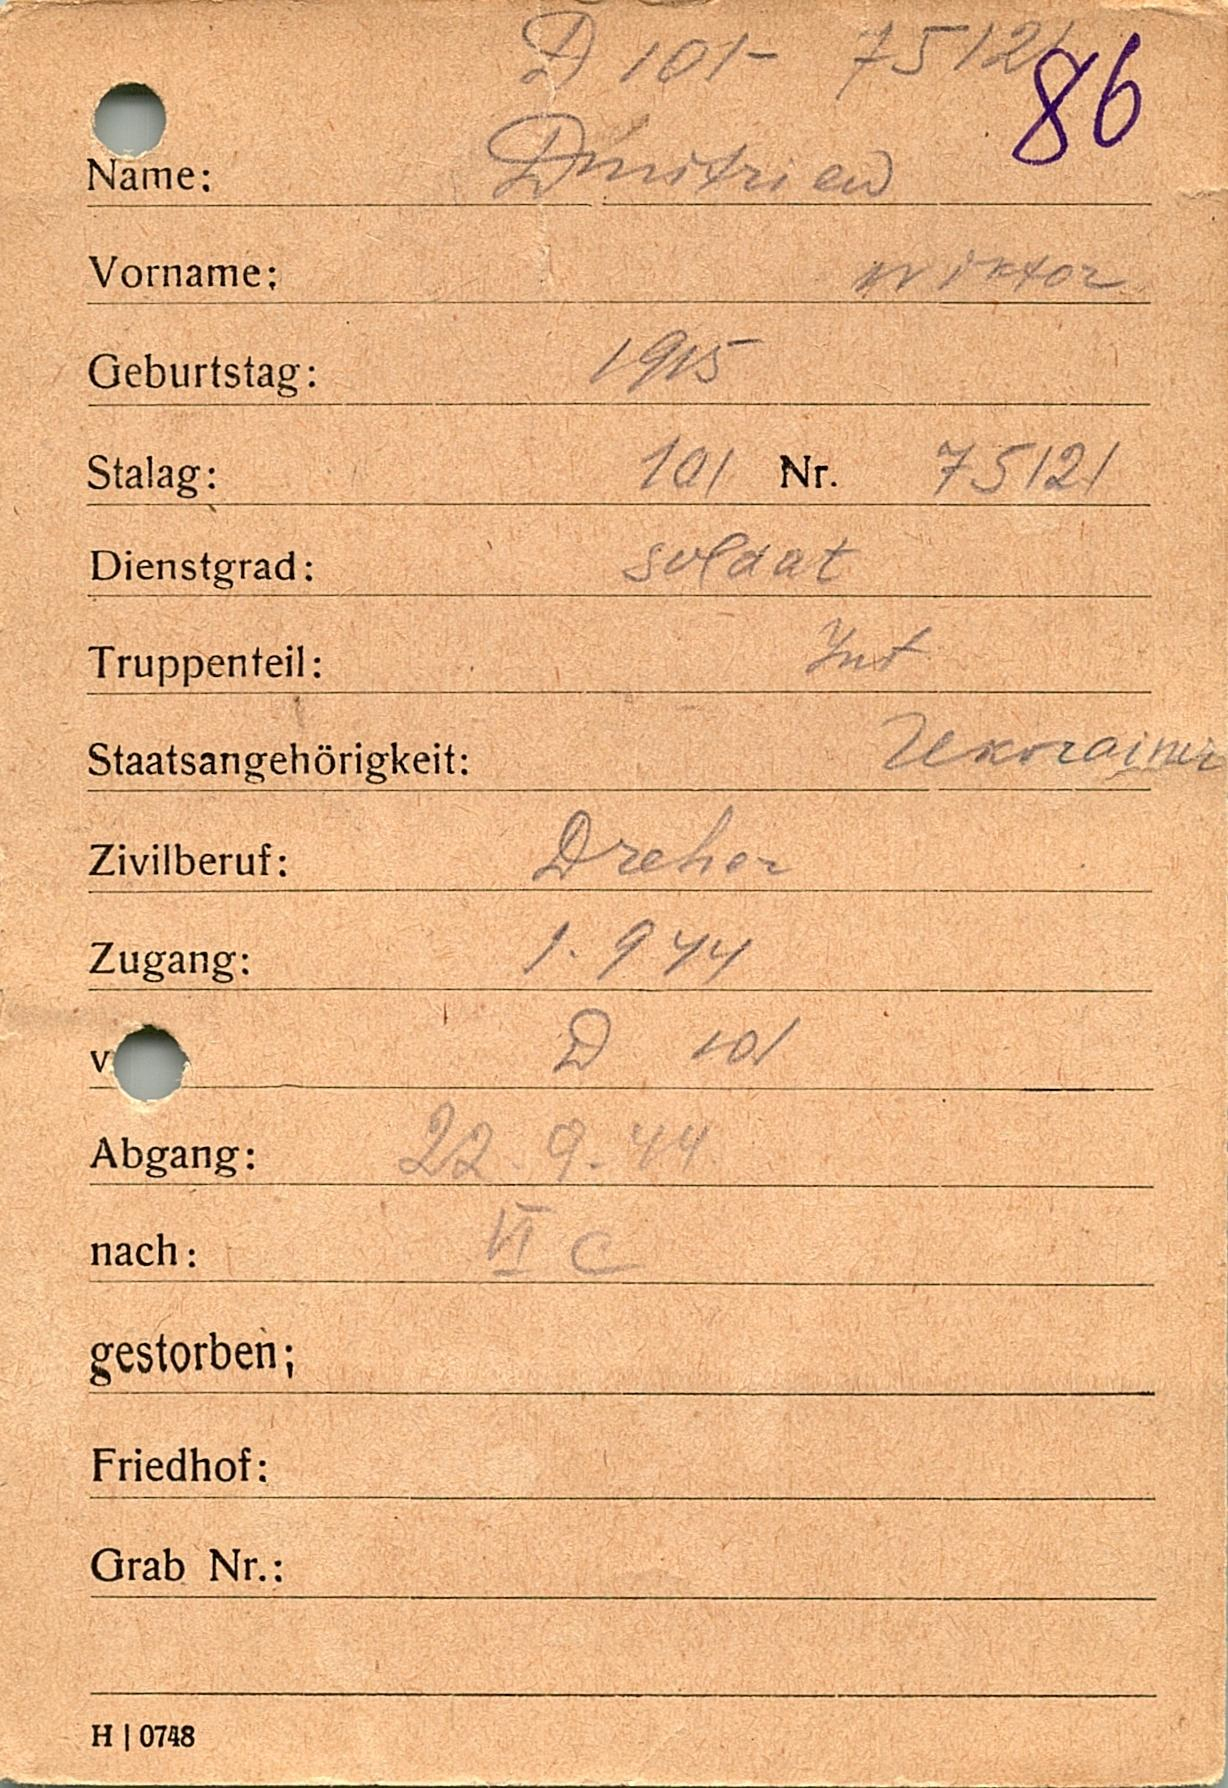 D 101- 75121
86
Name: Dmitriew
Vorname: Wiktor
Geburtstag: 1915
Stalag: 101 Nr. 75121
Dienstgrad: soldaat
Truppenteil: Inf
Staatsangehörigkeit: Ukrainer
Zivilberuf: Dreher
Zugang: 1. 9 44
v D 101
Abgang: 22. 9. 44
nach: VI C
gestorben;
Friedhof:
Grab Nr.:
H | 0748